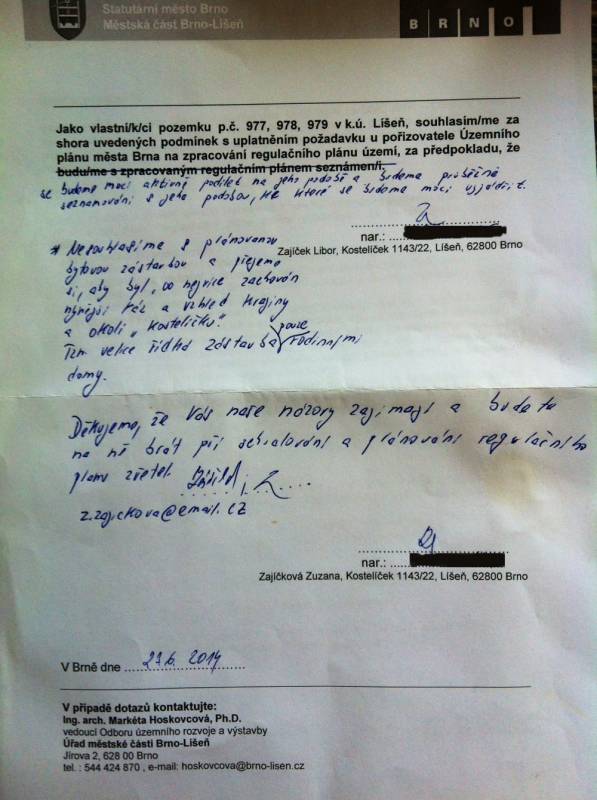 Statutární město Brno
Městská část Brno-Líšeň
BRNO
Jako vlastní/k/ci pozemku p.č. 977, 978, 979 v k.ú. Líšeň, souhlasím/me za
shora uvedených podmínek s uplatněním požadavku u pořizovatele Územního
plánu města Brna na zpracování regulačního plánu území, za předpokladu, že
budu/me s zpracovaným regulačním plánem seznámen/i.
se budeme moci aktivně podílet na jeho podobě a budeme průběžně
seznamováni s jeho podobou, ke které se budeme moci vyjádřit.
nar.:
Zajíček Libor, Kostelíček 1143/22, Líšeň, 62800 Brno
* Nesouhlasíme s plánovanou
bytovou zástavbou a přejeme
si, aby byl, co nejvíce zachován
nynější ráz a vzhled krajiny
a okolí „Kostelíčku".
Tzn velice řídká zástavba pouze rodinnými
domy.
Děkujeme, že Vás naše názory zajímají a budete
na ně brát při schvalování a plánování regulačního
plánu zřetel.
z.zajickova@email.cz
nar.:
Zajíčková Zuzana, Kostelíček 1143/22, Líšeň, 62800 Brno
V Brně dne 27.6. 2014
V případě dotazů kontaktujte:
Ing. arch. Markéta Hoskovcová, Ph.D.
vedoucí Odboru územního rozvoje a výstavby
Úřad městské části Brno-Líšeň
Jírova 2, 628 00 Brno
tel. : 544 424 870 , e-mail: hoskovcova@brno-lisen.cz